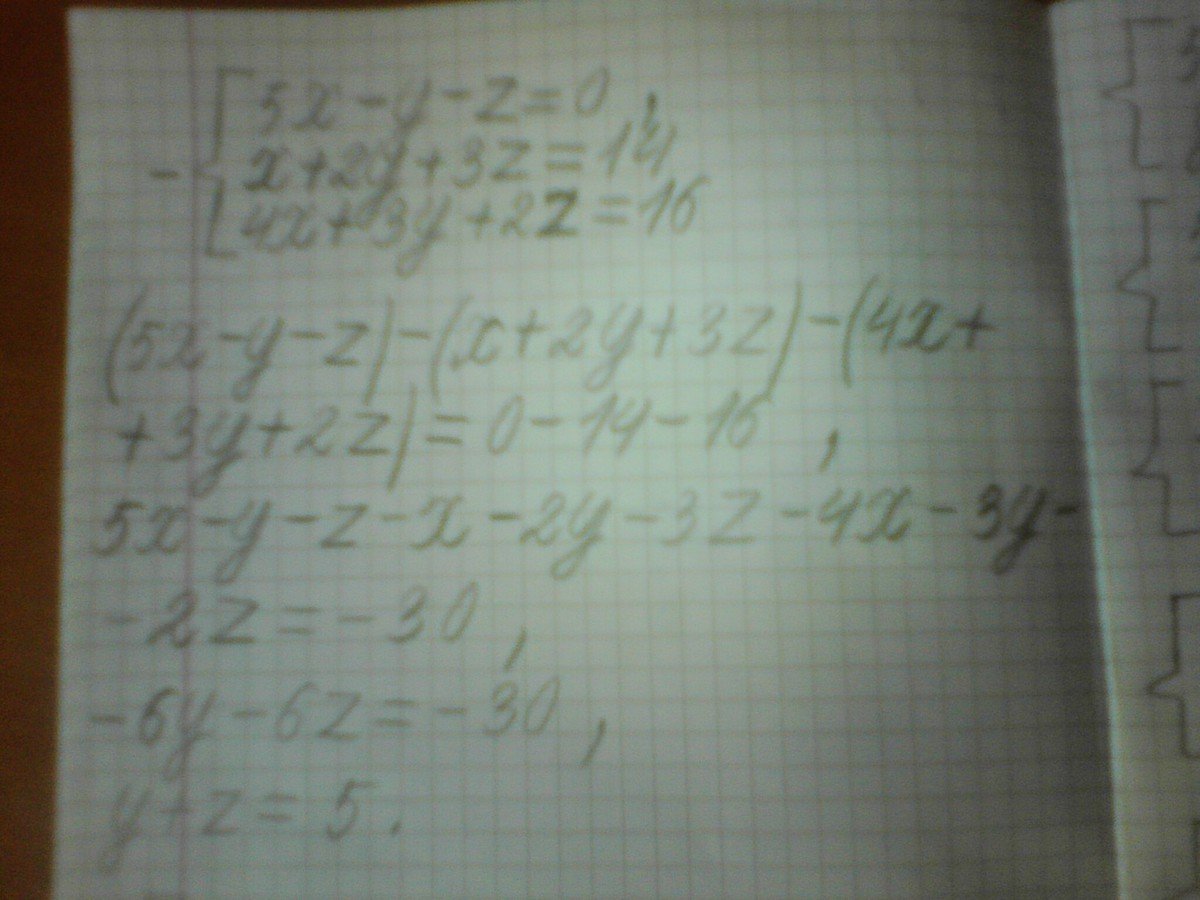 5x-y-z=0,
- x+2y+3z=14
4x+3y+2z=16
(5x-y-z)-(x+2y+3z)-(4x+
+3y+2z)=0-14-16,
5x-y-z-x-2y-3z-4x-3y-
-2z=-30,
-6y-6z=-30,
y+z=5.